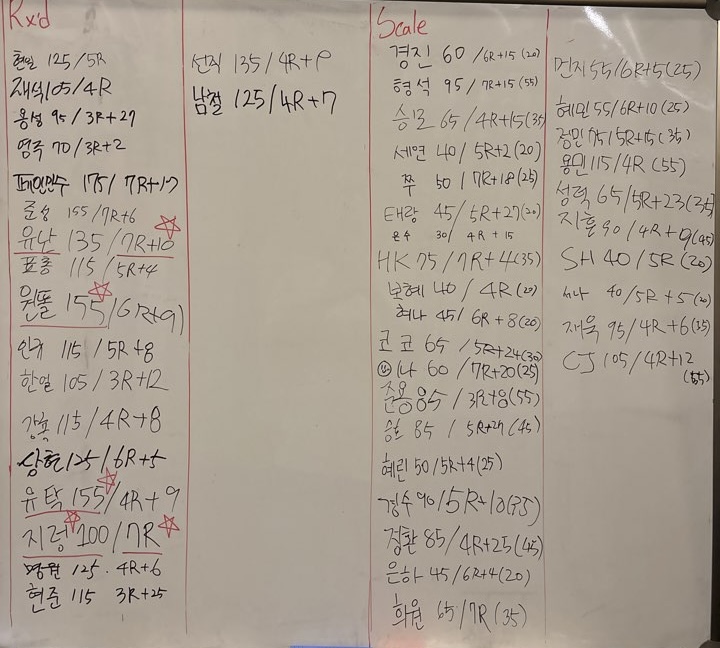 Rx'd
현일 125/5R
재석 105/4R
용성 95/3R+27
영주 70/3R+2
프레인민수 175/7R+17
준성 155/7R+6
유난 135/7R+10
표종 115/5R+4
원똘 155/6R+9
인규 115/5R+8
한일 105/3R+12
강혁 115/4R+8
상현 125/6R+5
유탁 155/4R+9
지렁 100/7R
명원 125. 4R+6
현준 115 3R+25
선직 135/4R+9
남철 125/4R+7
Scale
경진 60/6R+15(20)
형석 95/7R+15(55)
승모 65/4R+15(35
세연 40/5R+2(20)
쭈 50/7R+18(25)
태랑 45/5R+27(20)
은수 30/4R+15
HK 75/7R+4(35)
보혜 40/4R(20)
혀나 45/6R+8(20)
코코 65/5R+24(30)
나 60/7R+20(25)
준용 85/3R+8(55)
승호 85/5R+27(45)
혜린 50/5R+4(25)
경수 90/5R+10(35)
정환 85/4R+25(45)
은하 45/6R+4(20)
희원 65/7R(35)
먼지 55/6R+5(25)
혜민 55/6R+10(25)
정민 75/5R+15(35)
용민 115/4R(55)
성력 65/5R+23(35)
지훈 90/4R+19(45)
SH 40/5R(20)
40/5R+5(20)
재욱 95/4R+6(35)
CJ 105/4R+12
(55)